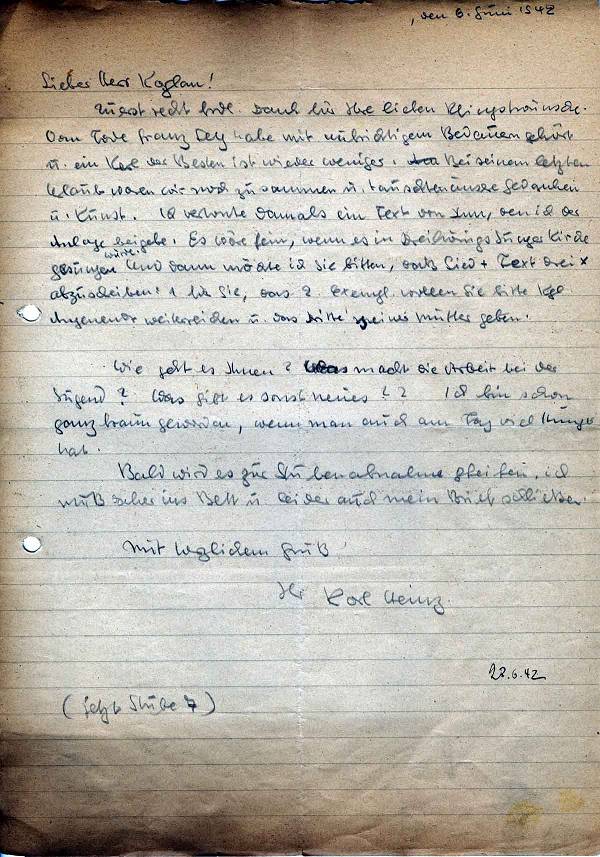 , den 6. Juni 1942
Lieber Herr Kaplan!
Zuerst recht herzl. Dank für Ihre lieben Pfingstwünsche.
Vom Tode Franz Dey habe mit aufrichtigem Bedauern gehört
u. ein Kerl der Besten ist wieder weniger. Bei seinem letzten
Urlaub waren wir noch zusammen u. tauschten unsere Gedanken
u. Kunst. Ich vertonte damals ein Text von Ihm, den ich der
Anlage beigebe. Es wäre fein, wenn es in Dreikönigs Junger Kirche
gesungen würde. Und dann möchte ich Sie bitten, das Lied + Text drei x
abzuschreiben: 1 für Sie, das 2. Exempl. wollen Sie bitte Kpl.
weiterreichen u. das dritte seiner Mutter geben.
Wie geht es Ihnen? Was macht die Arbeit bei der
Jugend? Was gibt es sonst neues?? Ich bin schon
ganz braun geworden, wenn man auch am Tag viel Hunger
hat.
Bald wird es zur Stubenabnahme pfeifen, ich
muß daher ins Bett u. leider auch mein Brief schließen.
Mit herzlichem Gruß
Ihr Karl Heinz.
22.6.42
(jetzt Stube 7)